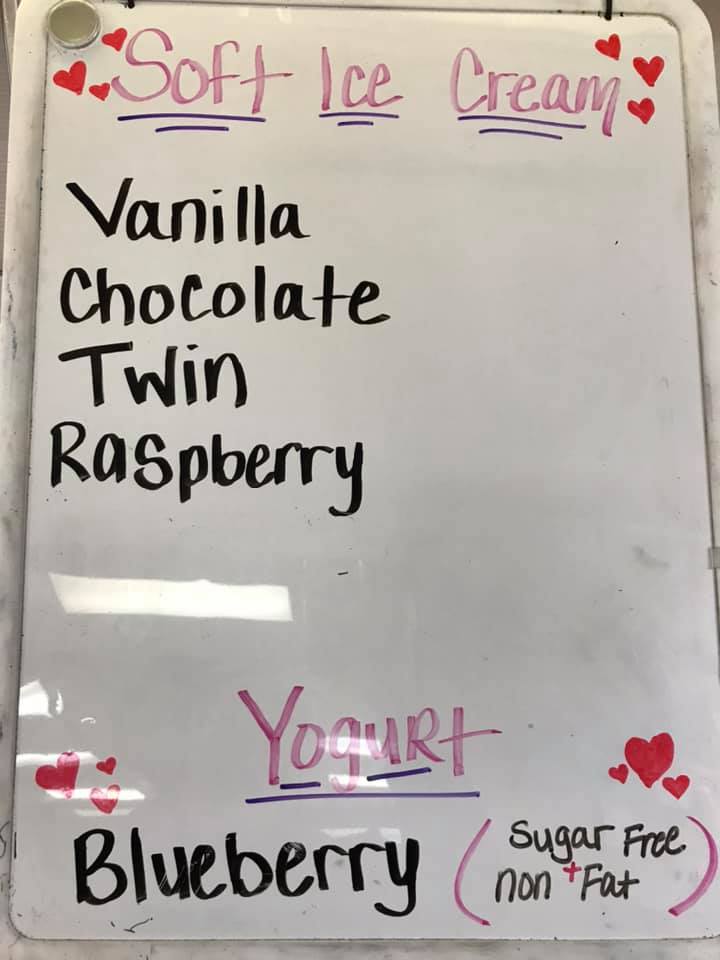 Soft Ice Cream
Vanilla
Chocolate
Twin
Raspberry
Yogurt
Blueberry (Sugar Free
non + Fat)